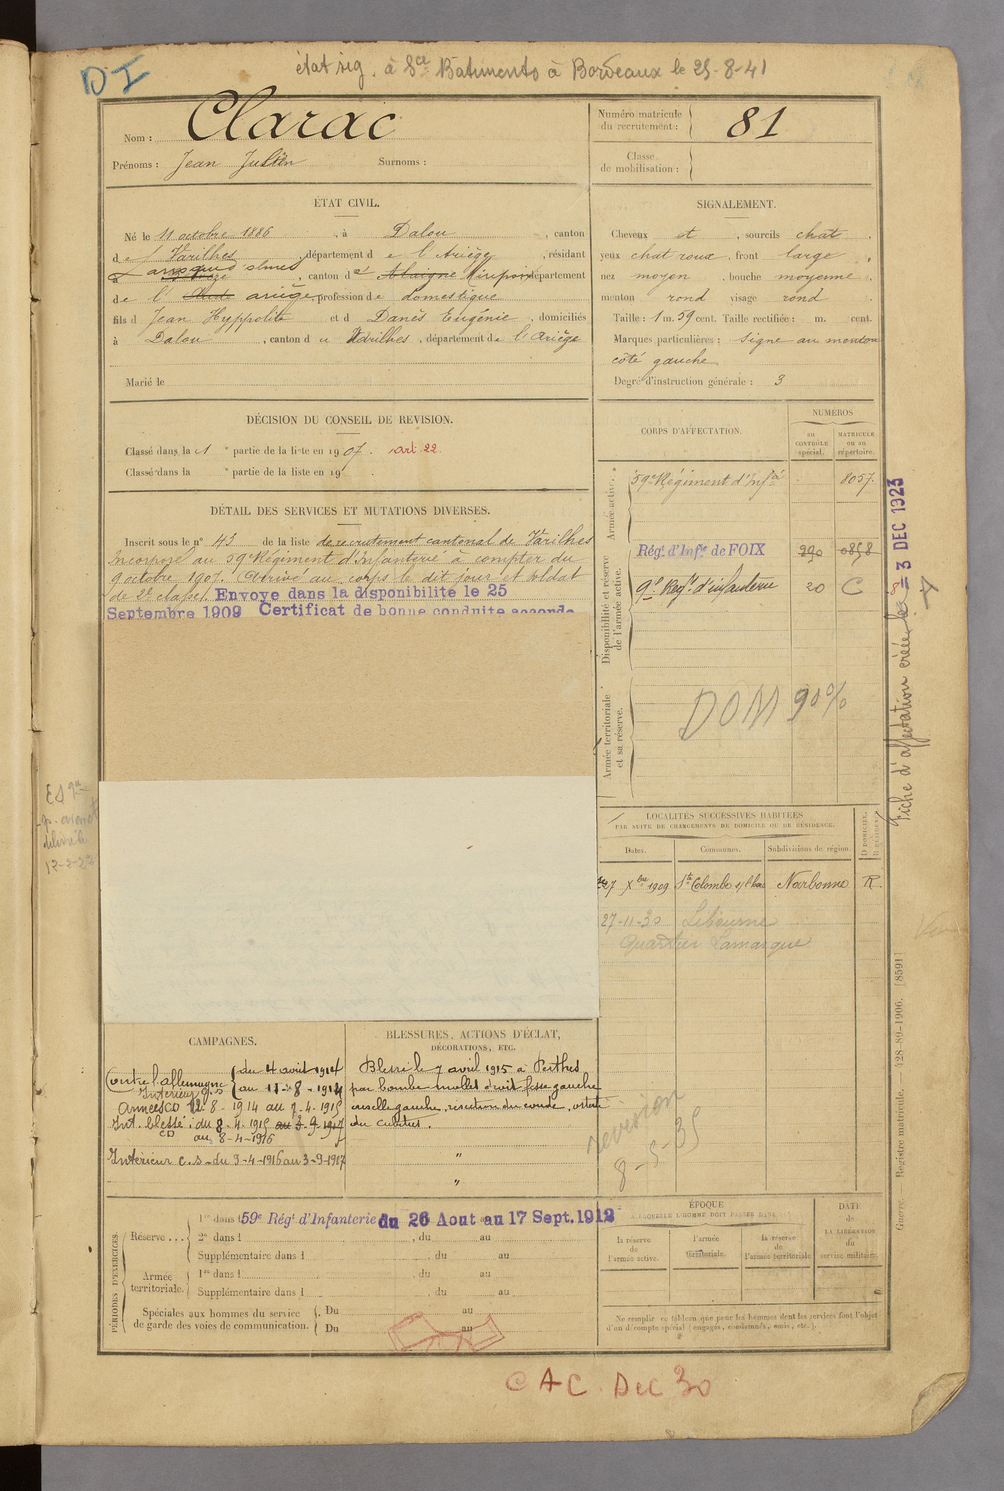 DI
état sig. à Sce Batiments à Bordeaux le 25-8-41
Nom : Clarac
Prénoms : Jean Julien Surnoms :
Numéro matricule du recrutement : 81
Classe de mobilisation :
ÉTAT CIVIL.
Né le 11 octobre 1886, à Dalou, canton
de Varilhes, département de l'Ariège, résidant
à, canton de Alaigne Mirepoix département
de l'Aude ariège, profession de domestique
fils d Jean Hyppolite et d Danès Eugénie, domiciliés
à Dalou, canton de Varilhes, département de l'Ariège
Marié le
SIGNALEMENT.
Cheveux et, sourcils chat
yeux chat roux, front large
nez moyen, bouche moyenne
menton rond visage rond
Taille : 1 m. 59 cent. Taille rectifiée : m. cent.
Marques particulières : signe au menton
côté gauche
Degré d'instruction générale : 3
DÉCISION DU CONSEIL DE REVISION.
Classé dans la 1e partie de la liste en 1907. art. 22
Classé dans la e partie de la liste en 19
DÉTAIL DES SERVICES ET MUTATIONS DIVERSES.
Inscrit sous le n° 43 de la liste de recrutement cantonal de Varilhes
Incorporé au 59e Régiment d'Infanterie à compter du
9 octobre 1907. Arrivé au corps le dit jour et soldat
de 2e classe. Envoyé dans la disponibilité le 25
Septembre 1909 Certificat de bonne conduite accordé
CORPS D'AFFECTATION.
NUMEROS
au CONTRÔLE spécial.
MATRICULE ou au répertoire.
Armée active.
59e Régiment d'Infie 8057
Disponibilité et réserve de l'armée active.
Régt d'Infie de FOIX 290 0858
9e Regt d'infanterie 20 C
Armée territoriale et sa réserve.
DOM 90%
Fiche d'affectation créée le 3 DEC 1923
LOCALITÉS SUCCESSIVES HABITÉES
PAR SUITE DE CHANGEMENTS DE DOMICILE OU DE RÉSIDENCE.
Dates. Communes. Subdivisions de région. D DOMICILE. R RÉSIDENCE.
27 Xbre 1909 Ste Colombe s/ l'hers Narbonne R.
27-11-30 Libourne
Quartier Lamarque
12-2-22
CAMPAGNES.
Contre l'allemagne du 4 août 1914
Intérieur c.s au 11-8-1914
Armées CD 12-8-1914 au 7-4-1915
Int. blessé : du 8-4-1915 au 3-9-1917
CD au 8-4-1916
Intérieur c.s du 9-4-1916 au 3-9-1917
BLESSURES, ACTIONS D'ÉCLAT,
DÉCORATIONS, ETC.
Blessé le 7 avril 1915 à Perthes
par bombe mollet droit fesse gauche
aisselle gauche, résection du coude
du cubitus.
revision
8-5-35
PÉRIODES D'EXERCICES.
Réserve... 1re dans l 59e Régt d'Infanterie du 26 Aout au 17 Sept. 1912
2e dans l, du au
Supplémentaire dans l, du au
Armée territoriale. 1re dans l, du au
Supplémentaire dans l, du au
Spéciales aux hommes du service de garde des voies de communication. Du au
Du au
ÉPOQUE
À LAQUELLE L'HOMME DOIT PASSER DANS :
la réserve de l'armée active.
l'armée territoriale.
la réserve de l'armée territoriale.
DATE de LA LIBÉRATION du service militaire.
Ne remplir ce tableau que pour les hommes dont les services font l'objet
d'un décompte spécial (engagés, condamnés, omis, etc.).
Guerre. — Registre matricule. — 428-89-1906. [8591]
CAC. Dec 30